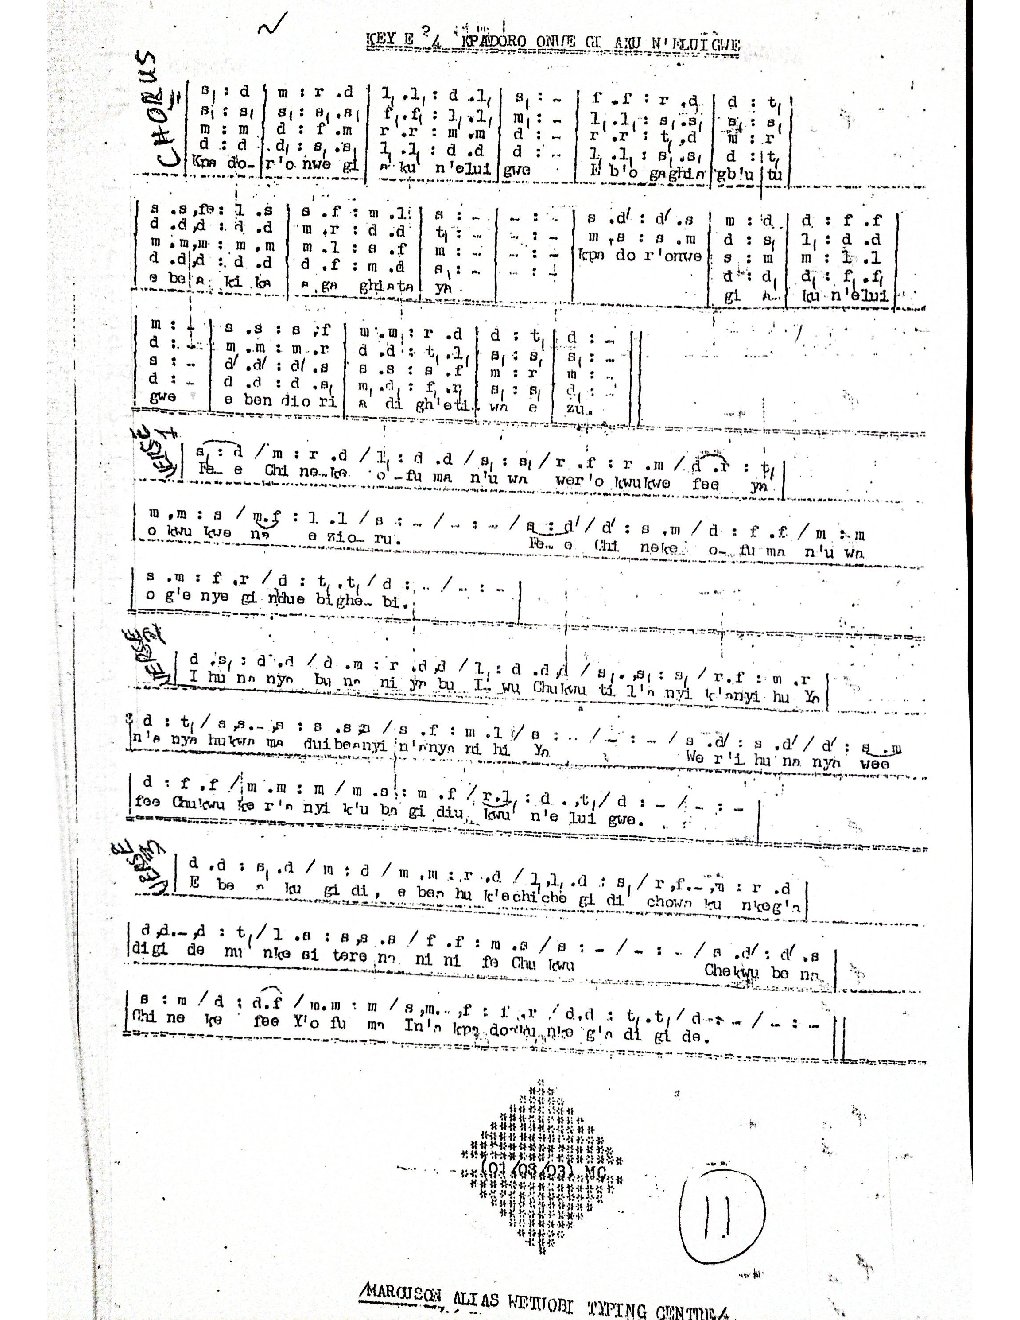 KEY E 2/4 KPADORO ONWE GI AKU N'ELUIGWE
CHORUS
s₁ : d | m : r .d | l₁ .l₁ : d .l₁ | s₁ : - | f .f : r .d | d : t₁
s₁ : s₁ | s₁ : s₁ .s₁ | f₁ .f₁ : l₁ .l₁ | m₁ : - | l₁ .l₁ : s₁ .s₁ | s₁ : s₁
m : m | d : f .m | r .r : m .m | d : - | r .r : t₁ .d | m : r
d : d | d₁ : s₁ .s₁ | l₁ .l₁ : d .d | d : - | l₁ .l₁ : s₁ .s₁ | d : t₁
Kpa do- r'o nwe gi a ku n'elui gwe E b'o gaghia gb'u tu
s .s ,fe : l .s | s .f : m .l | s : - | - : - | s .d' : d' .s | m : d | d : f .f
d .d ,d : d .d | m .r : d .d | t₁ : - | - : - | m .s : s .m | d : s₁ | l₁ : d .d
m .m ,m : m .m | m .l : s .f | m : - | - : - | kpa do r'onwe | s : m | m : l .l
d .d ,d : d .d | d .f : m .d | s₁ : - | - : - | d : d₁ | d₁ : f₁ .f₁
e be a ki ka a ga ghiata ya gi a ku n'elui
m : - | s .s : s .f | m .m : r .d | d : t₁ | d : -
d : - | m .m : m .r | d .d : t₁ .l₁ | s₁ : s₁ | s₁ : -
s : - | d' .d' : d' .s | s .s : s .f | m : r | m : -
d : - | d .d : d .s₁ | m₁ .d₁ : f₁ .r₁ | s₁ : s₁ | d₁ : -
gwe e ben dio ri a di gh'eti wa e zu.
VERSE 1
s₁ : d / m : r .d / l₁ : d .d / s₁ : s₁ / r .f : r .m / d .r : t₁
Fe- e Chi ne-ke o -fu ma n'u wa wer'o kwukwe fee ya
m .m : s / m.f : l .l / s : - / - : - / s : d' / d' : s .m / d : f .f / m : m
o kwu kwe na e zio- ru. Fe- e Chi neke o- fu ma n'u wa
s .m : f .r / d : t₁ .t₁ / d : - / - : -
o g'e nye gi ndue bighe- bi.
VERSE 2
d .s₁ : d .d / d .m : r .d,d / l₁ : d .d,d / s₁ . ,s₁ : s₁ / r.f : m .r
I hu na nya bu na ni ya bu I wu Chukwu ti l'a nyi k'anyi hu Ya
d : t₁ / s,s.-,s : s .s,s / s .f : m .l / s : - / - : - / s .d' : s .d' / d' : s .m
n'a nya hukwa ma duibeanyi n'anya ni hi Ya We r'i hu na nya wee
d : f .f / m .m : m / m .s : m .f / r.l₁ : d .,t₁ / d : - / - : -
fee Chukwu ke r'a nyi k'u ba gi diu, kwu n'e lui gwe.
VERSE 3
d .d : s₁ .d / m : d / m .m : r .d / l₁.l₁ .d : s₁ / r,f.-,m : r .d
E be a ku gi di , e ben hu k'echiche gi di chown ku nkeg'a
d,d.-,d : t₁ / l .s : s,s .s / f .f : m .s / s : - / - : - / s .d' : d' .s
digi de nu nke si tere na ni ni fe Chu kwu Chekwu be na
s : m / d : d.f / m.m : m / s,m.-,f : f .r / d.d : t₁.t₁ / d : - / - : -
Chi ne ke fee Y'o fu ma In'a kpa do-ku nke g'a di gi de.
(01/08/03) MC
11
/MARCUSON ALIAS WETUOBI TYPING CENTRE/